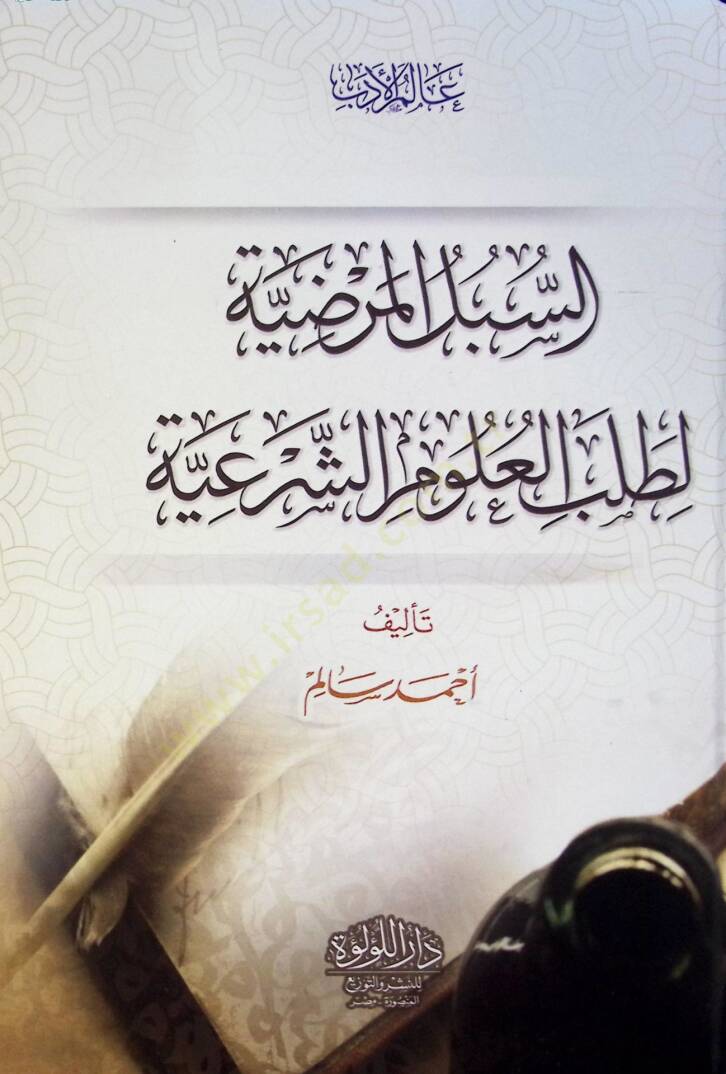 عالم الأدب
السُّبُلُ المَرْضِيَّة
لِطَلَبِ العُلُومِ الشَّرْعِيَّة
تَأْلِيْفُ
أحْمَد سَالِمْ
www.irsad.com
دار اللؤلؤة
للنشر والتوزيع
المنصورة - مصر